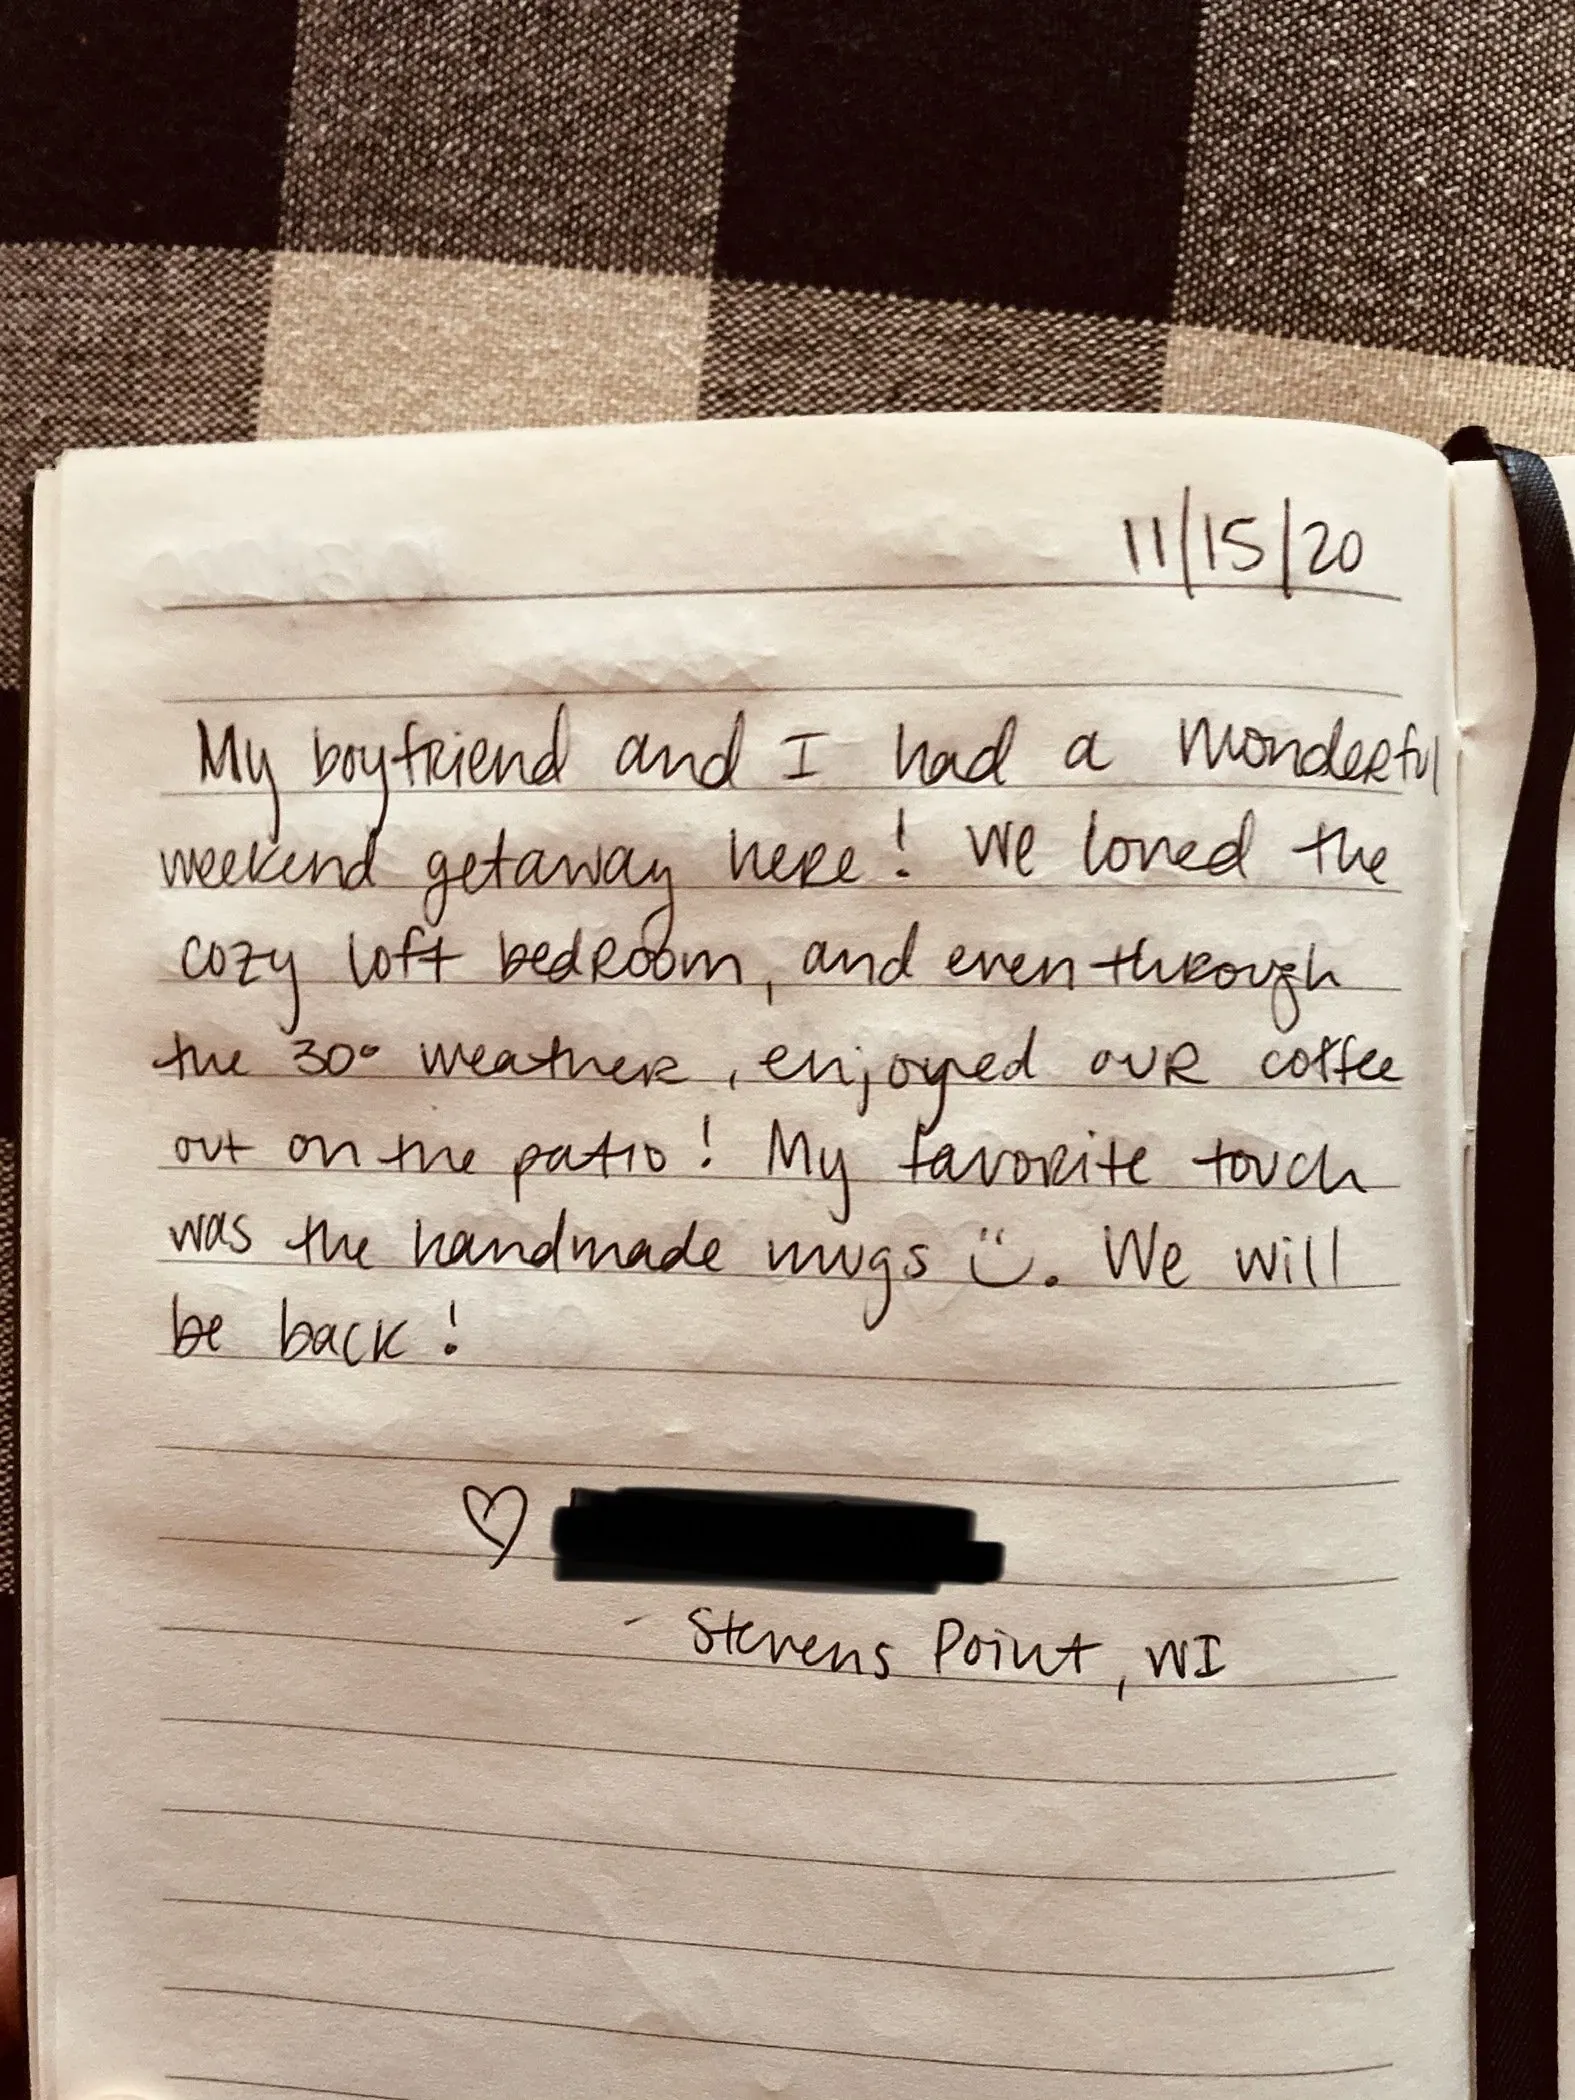 11/15/20
My boyfriend and I had a wonderful
weekend getaway here! We loved the
cozy loft bedroom, and even through
the 30° weather, enjoyed our coffee
out on the patio! My favorite touch
was the handmade mugs ü. We will
be back!
♡
- Stevens Point, WI